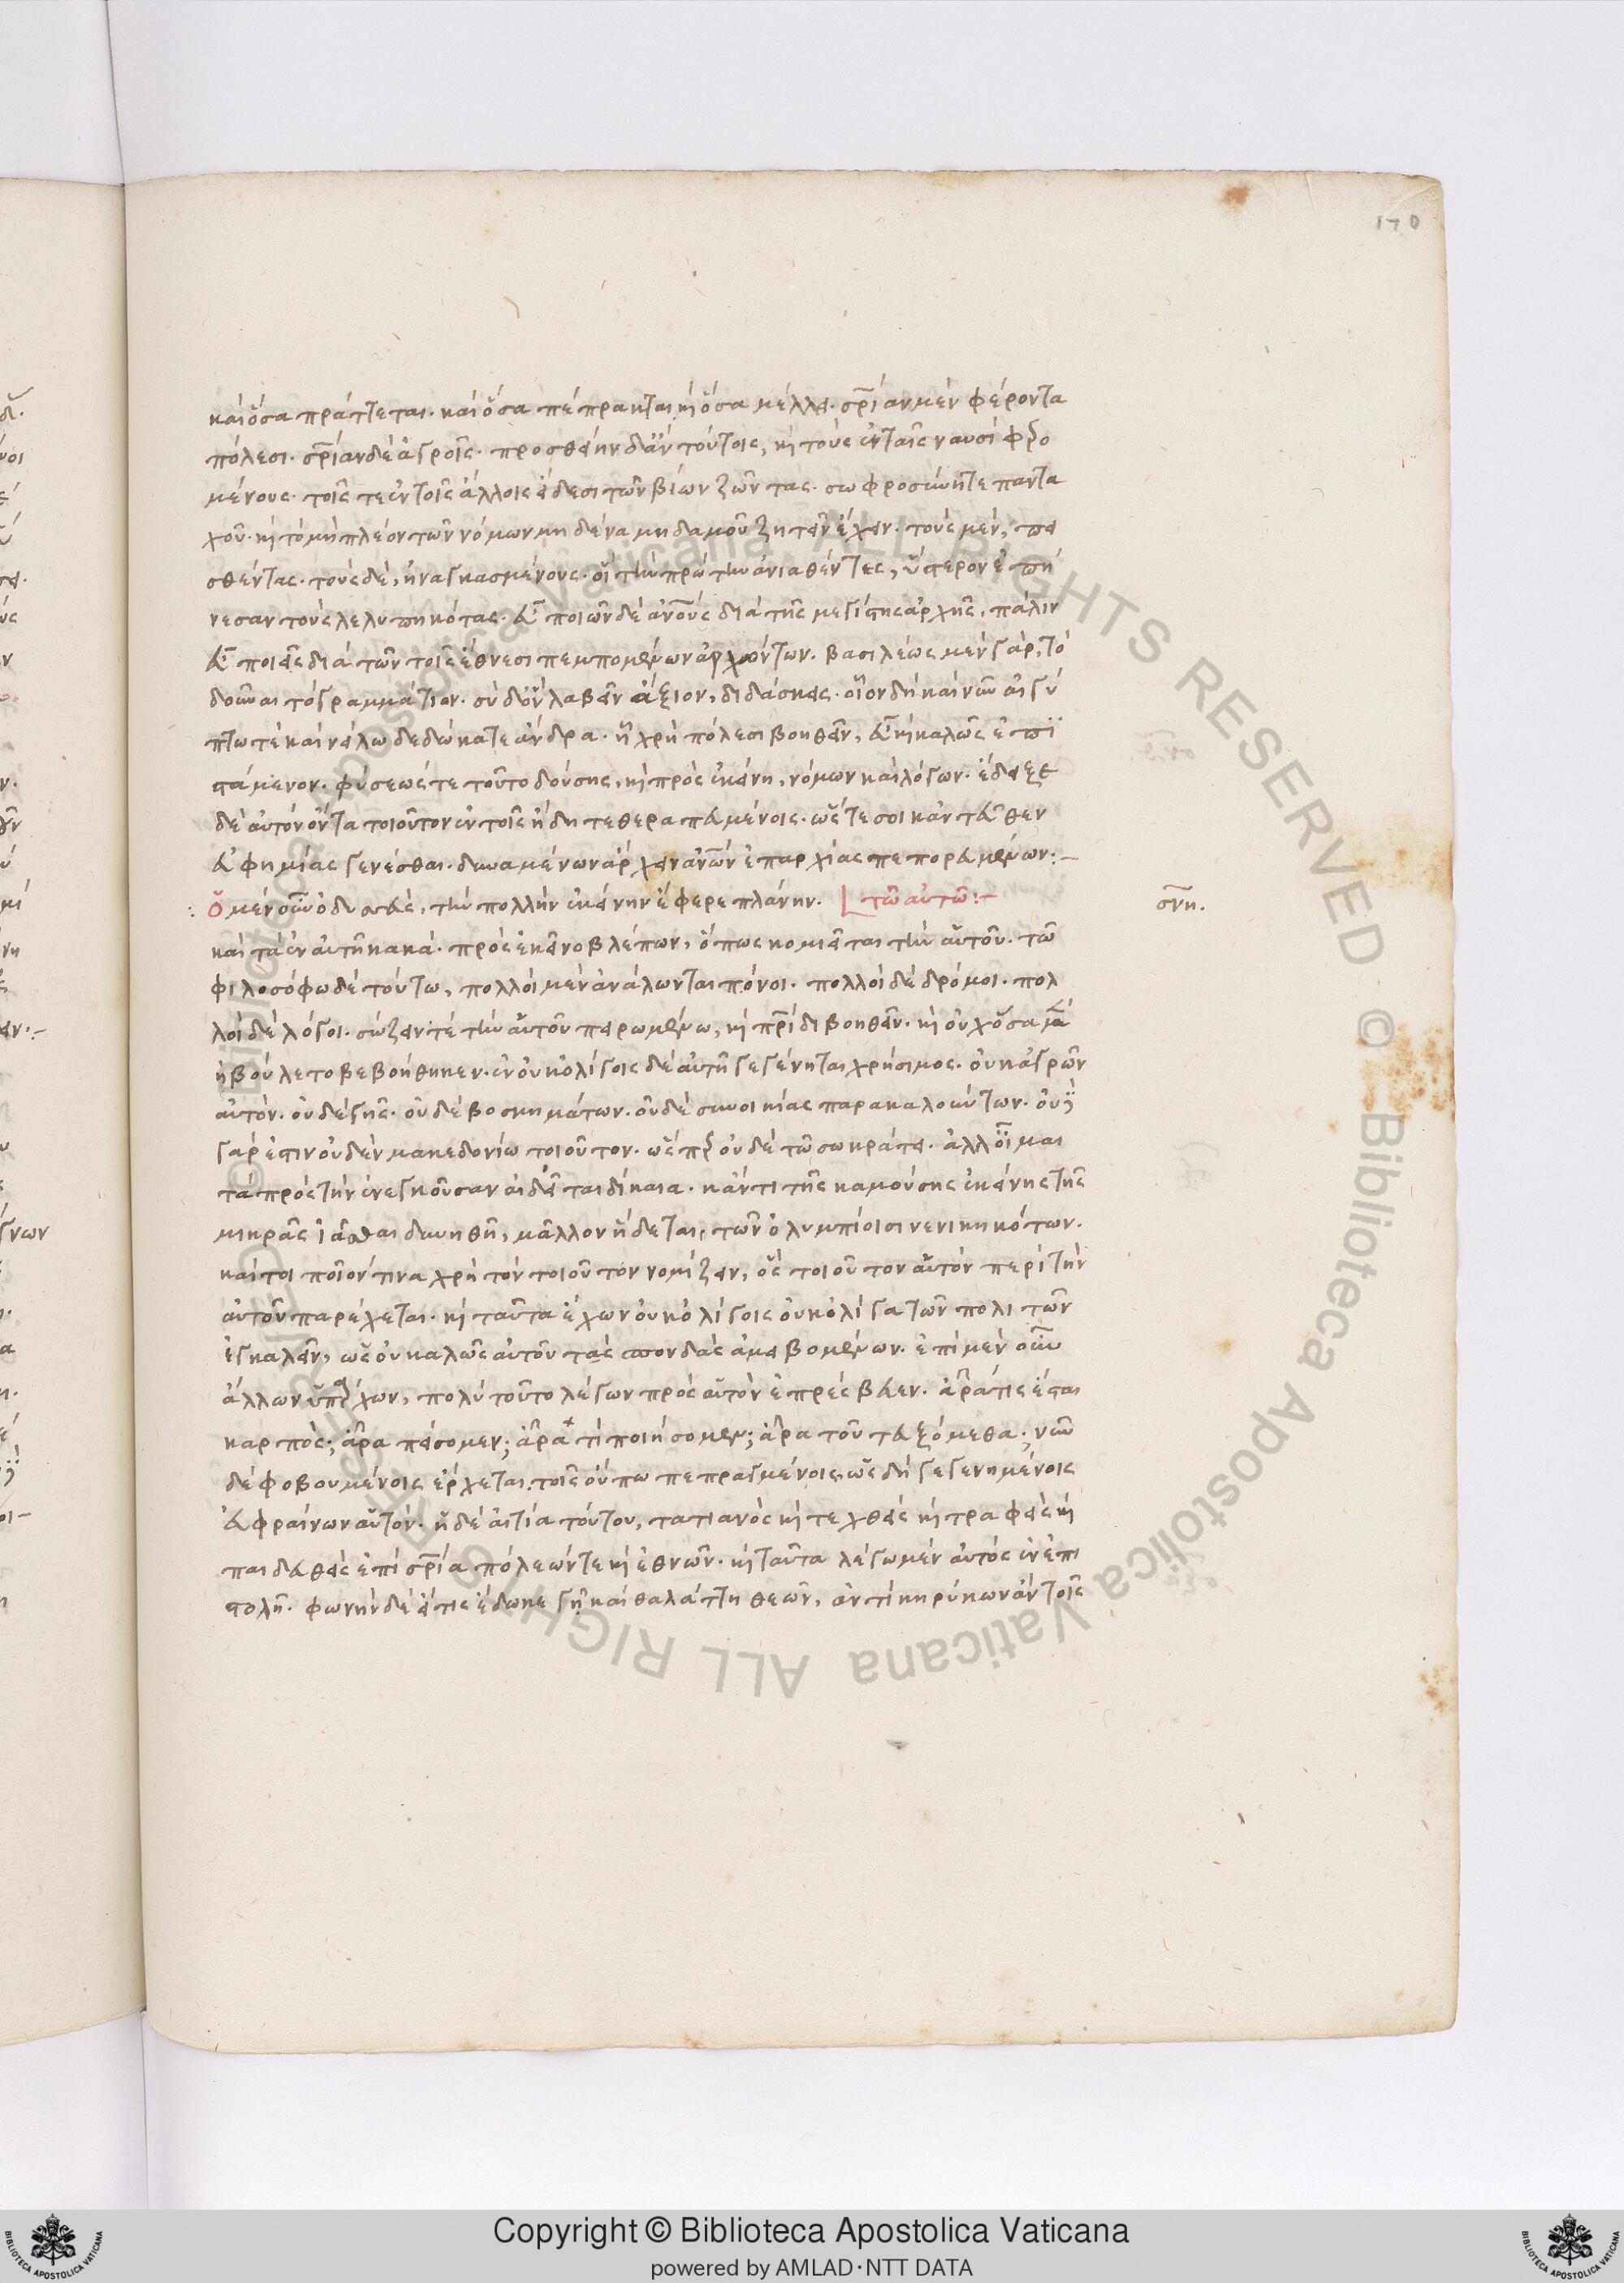 170
καὶ ὅσα πράττεται. καὶ ὅσα πέπρακται κὶ ὅσα μέλλει. σρίαν μὲν φέροντα
πόλεσι. σρίαν δὲ ἀγροῖς. προσθείην δ' ἂν τούτοις, κὶ τοὺς ἐν ταῖς ναυσὶ φερο
μένους. τοῖς τε ἐν τοῖς ἄλλοις εἴδεσι τῶν βίων ζῶντας. σωφροσύνη τε πανта
χοῦ. κὶ τὸ μὴ πλέον τῶν νόμων μηδένα μηδαμοῦ ζητεῖν ἔχειν. τοὺς μὲν, πει
σθέντας. τοὺς δὲ, ἠναγκασμένους. οἳ τὴν πρώτην ἀνιαθέντες, ὕστερον ἐπῄ
νεσαν τοὺς λελυπηκότας. εὖ ποιῶν δὲ ἀνους διὰ τῆς μεγίστης ἀρχῆς, πάλιν
εὖ ποιεῖς διὰ τῶν τοῖς ἔθνεσι πεμπομένων ἀρχόντων. βασιλέως μὲν γὰρ, τὸ
δοῦναι τὸ γραμματίον. σὺ δ' οὖν λαβεῖν ἄξιον, διδάσκεις. οἷον δὴ καὶ νῦν αἰγύ
πτω τὲ καὶ νείλω δεδώκατε ἄνδρα. ᾗ χρὴ πόλεσι βοηθεῖν, εὖ κὶ καλῶς ἐπϊ
στάμενον. φύσεώς τε τοῦτο δούσης, κὶ πρὸς ἐκείνη, νόμων καὶ λόγων. ἔδειξε
δὲ αὐτὸν ὄντα τοιοῦτον ἐν τοῖς ἤδη τεθεραπευμένοις. ὥστε σοι κἀντεῦθεν
εὐφημίας γενέσθαι. δυναμένων ἄρχειν ἀνων ἐπαρχίας πεπορευμένων:–
Ὁ μὲν οὖν ὀδυσσεὺς, τὴν πολλὴν ἐκείνην ἔφερε πλάνην. τῶ αὐτῶ:–
σνη.
καὶ τὰ ἐν αὐτῆ κακὰ. πρὸς ἐκεῖνο βλέπων, ὅπως κομιεῖται τὴν αὑτοῦ. τῶ
φιλοσόφω δὲ τούτω, πολλοὶ μὲν ἀνάλωνται πόνοι. πολλοὶ δὲ δρόμοι. πολ
λοὶ δὲ λόγοι. σώζειν τὲ τὴν αὑτοῦ πειρωμένω, κὶ πρίδι βοηθεῖν. κὶ οὐχ ὅσα μὰ
ἠβούλετο βεβοήθηκεν. ἐν οὐκ ὀλίγοις δὲ αὐτῆ γεγένηται χρήσιμος. οὐκ ἀγρῶν
αὐτὸν. οὐδὲ γῆς. οὐδὲ βοσκημάτων. οὐδὲ συνοικίας παρακαλούντων. οὐ
γάρ ἐστιν οὐδὲν μακεδονίω τοιοῦτον. ὥσπερ οὐδὲ τῶ σωκράτει. ἀλλ' οἶμαι
τὰ πρὸς τὴν ἐνεγκοῦσαν αἰδεῖται δίκαια. κἄν τι τῆς καμούσης ἐκείνης τῆς
μικρᾶς ἰᾶσθαι δυνηθῆ, μᾶλλον ἥδεται, τῶν ὀλυμπίοισι νενικηκότων.
καίτοι ποῖόν τινα χρὴ τὸν τοιοῦτον νομίζειν, ὃς τοιοῦτον αὑτὸν περὶ τὴν
αὑτοῦ παρέχεται. κὶ ταῦτα ἔχων οὐκ ὀλίγοις οὐκ ὀλίγα τῶν πολιτῶν
ἐγκαλεῖν, ὡς οὐ καλῶς αὐτοῦ τὰς σπονδὰς ἀμειβομένων. ἐπὶ μὲν οὖν
ἄλλων ὑπάρχων, πολὺ τοῦτο λέγων πρὸς αὑτὸν ἐπρέσβευεν. ἆρά τις ἔσται
καρπὸς; ἆρα πείσομεν; ἆρά τι ποιήσομεν; ἆρα του τευξόμεθα; νῦν
δὲ φοβουμένοις ἔρχεται τοῖς οὔπω πεπραγμένοις, ὡς δὴ γεγενημένοις
εὐφραίνων αὑτόν. ἡ δὲ αἰτία τούτου, τατιανὸς κὶ τεχθεὶς κὶ τραφεὶς κὶ
παιδευθεὶς ἐπὶ σρία πόλεών τε κὶ ἐθνῶν. κὶ ταῦτα λέγω μὲν αὐτὸς ἐν ἐπι
στολῆ. φωνὴν δὲ εἴ τις ἔδωκε γῆ καὶ θαλάττη θεῶν, ἀντὶ κηρύκων ἂν τοῖς
Copyright © Biblioteca Apostolica Vaticana
powered by AMLAD·NTT DATA